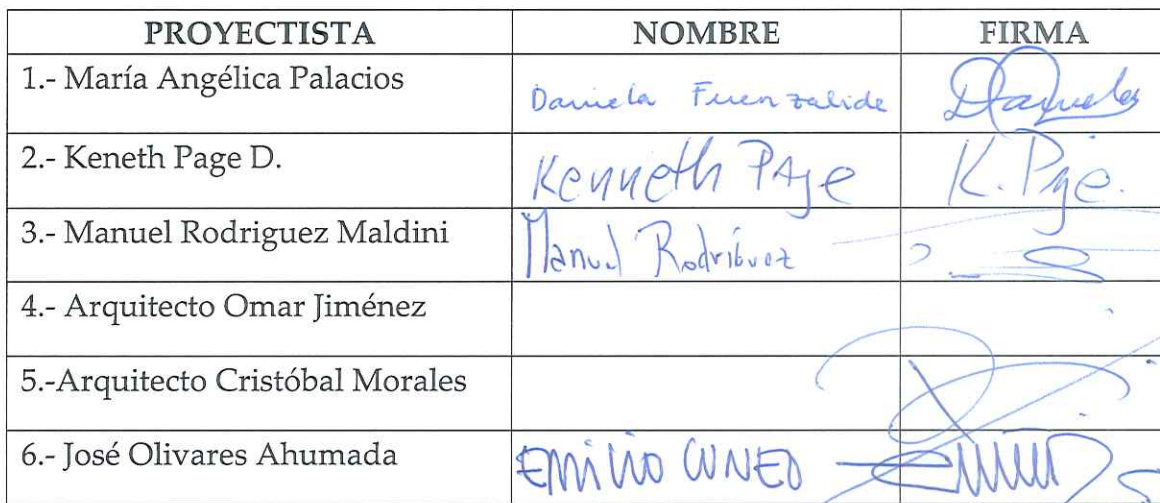 PROYECTISTA NOMBRE FIRMA
1.- María Angélica Palacios Daniela Fuenzalide
2.- Keneth Page D. Kenneth PAge K. Page.
3.- Manuel Rodriguez Maldini Manuel Rodríguez
4.- Arquitecto Omar Jiménez
5.-Arquitecto Cristóbal Morales
6.- José Olivares Ahumada EMILIO CUNEO